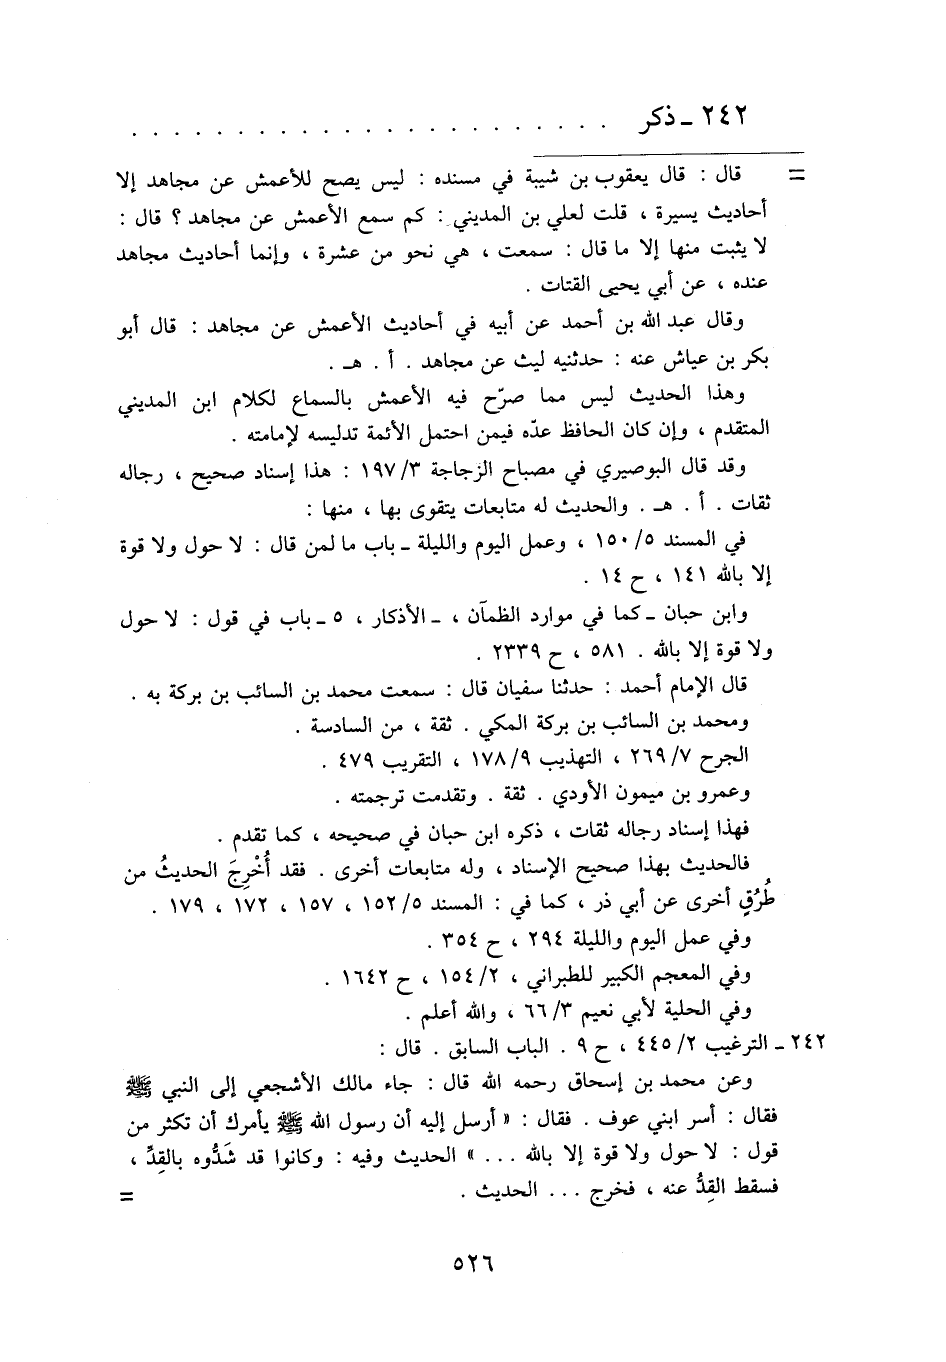 ٢٤٢ ـ ذكر . . . . . . . . . . . . . . . . . . . . . . .
= قال : قال يعقوب بن شيبة في مسنده : ليس يصح للأعمش عن مجاهد إلا
أحاديث يسيرة ، قلت لعلي بن المديني : كم سمع الأعمش عن مجاهد ؟ قال :
لا يثبت منها إلا ما قال : سمعت ، هي نحو من عشرة ، وإنما أحاديث مجاهد
عنده ، عن أبي يحيى القتات .
وقال عبد الله بن أحمد عن أبيه في أحاديث الأعمش عن مجاهد : قال أبو
بكر بن عياش عنه : حدثنيه ليث عن مجاهد . أ . هـ .
وهذا الحديث ليس مما صرّح فيه الأعمش بالسماع لكلام ابن المديني
المتقدم ، وإن كان الحافظ عدّه فيمن احتمل الأئمة تدليسه لإمامته .
وقد قال البوصيري في مصباح الزجاجة ٣/ ١٩٧ : هذا إسناد صحيح ، رجاله
ثقات . أ . هـ . والحديث له متابعات يتقوى بها ، منها :
في المسند ٥/ ١٥٠ ، وعمل اليوم والليلة ـ باب ما لمن قال : لا حول ولا قوة
إلا بالله ١٤١ ، ح ١٤ .
وابن حبان ـ كما في موارد الظمآن ، ـ الأذكار ، ٥ ـ باب في قول : لا حول
ولا قوة إلا بالله . ٥٨١ ، ح ٢٣٣٩ .
قال الإمام أحمد : حدثنا سفيان قال : سمعت محمد بن السائب بن بركة به .
ومحمد بن السائب بن بركة المكي . ثقة ، من السادسة .
الجرح ٧/ ٢٦٩ ، التهذيب ٩/ ١٧٨ ، التقريب ٤٧٩ .
وعمرو بن ميمون الأودي . ثقة . وتقدمت ترجمته .
فهذا إسناد رجاله ثقات ، ذكره ابن حبان في صحيحه ، كما تقدم .
فالحديث بهذا صحيح الإسناد ، وله متابعات أخرى . فقد أُخْرِجَ الحديثُ من
طُرُقٍ أخرى عن أبي ذر ، كما في : المسند ٥/ ١٥٢ ، ١٥٧ ، ١٧٢ ، ١٧٩ .
وفي عمل اليوم والليلة ٢٩٤ ، ح ٣٥٤ .
وفي المعجم الكبير للطبراني ، ٢/ ١٥٤ ، ح ١٦٤٢ .
وفي الحلية لأبي نعيم ٣/ ٦٦ ، والله أعلم .
٢٤٢ ـ الترغيب ٢/ ٤٤٥ ، ح ٩ . الباب السابق . قال :
وعن محمد بن إسحاق رحمه الله قال : جاء مالك الأشجعي إلى النبي ﷺ
فقال : أسر ابني عوف . فقال : « أرسل إليه أن رسول الله ﷺ يأمرك أن تكثر من
قول : لا حول ولا قوة إلا بالله ... » الحديث وفيه : وكانوا قد شَدُّوه بالقِدِّ ،
فسقط القِدُّ عنه ، فخرج ... الحديث . =
٥٢٦